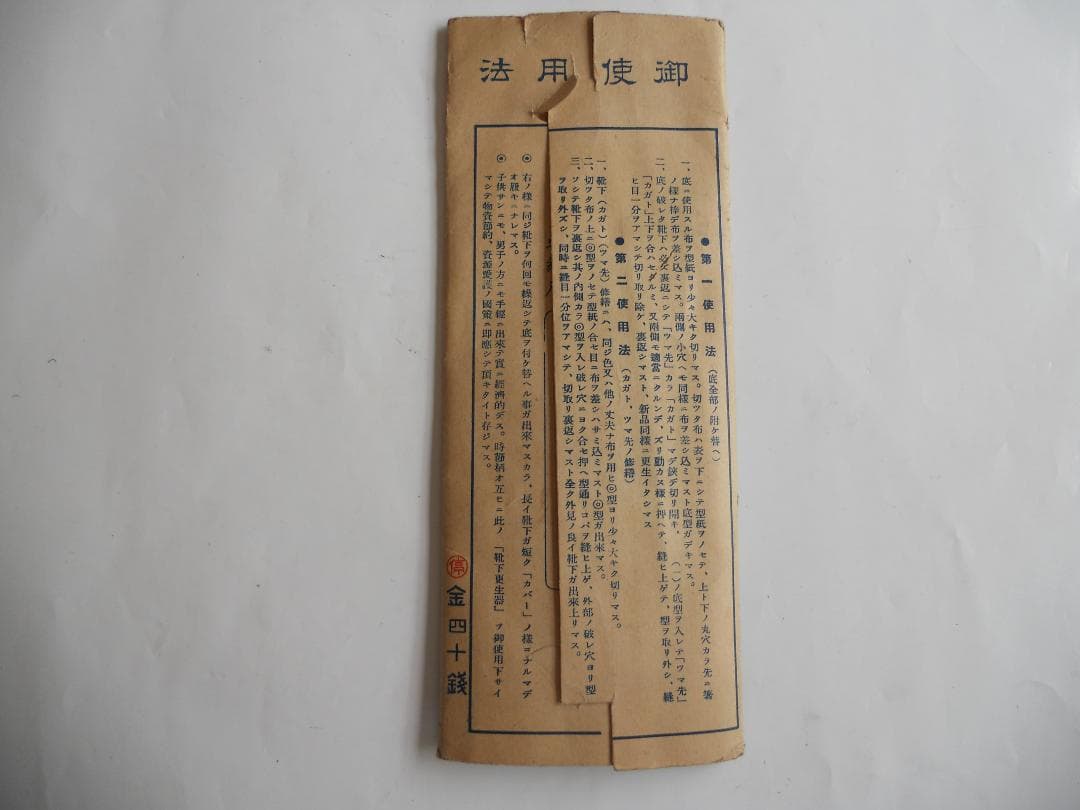 御使用法
●第一使用法(底全部ノ附ケ替ヘ)
一、底ニ使用スル布ヲ型紙ヨリ少々大キク切リマス。切ツタ布ハ表ヲ下ニシテ型紙ヲノセテ、上ト下ノ丸穴カラ先ニ箸
ノ樣ナ棒デ布ヲ差シ込ミマス。兩側ノ小穴ヘモ同樣ニ布ヲ差シ込ミマスト底型ガデキマス。
二、底ノ破レタ靴下ハ必ズ裏返ニシテ「ツマ先」カラ「カガト」マデ鋏デ切リ開キ、(一)ノ底型ヲ入レテ「ツマ先」
「カガト」上下ヲ合ハセダルミ、又兩側モ適當ニクルンデ、ズリ動カヌ樣ニ押ヘテ、縫ヒ上ゲテ、型ヲ取リ外シ、縫
ヒ目一分ヲアマシテ切リ取リ除ケ、裏返シマスト、新品同樣ニ更生イタシマス
●第二使用法(カガト、ツマ先ノ修繕)
一、靴下(カガト)(ツマ先)修繕ニハ、同ジ色又ハ他ノ丈夫ナ布ヲ用ヒ◎型ヨリ少々大キク切リマス。
二、切ツタ布ノ上ニ◎型ヲノセテ型紙ノ合セ目ニ布ヲ差シハサミ込ミマスト◎型ガ出來マス。
三、ソシテ靴下ヲ裏返シ其ノ內側カラ◎型ヲ入レ破レ穴ニヨク合セ押ヘ型通リコバヲ縫ヒ上ゲ、外部ノ破レ穴ヨリ型
ヲ取リ外ズシ、同時ニ縫目一分位ヲアマシテ、切取リ裏返シマスト全ク外見ノ良イ靴下ガ出來上リマス。
◉右ノ樣ニ同ジ靴下ヲ何回モ繰返シテ底ヲ付ケ替ヘル事ガ出來マスカラ、長イ靴下ガ短ク「カバー」ノ樣ニナルマデ
オ履キニナレマス。
◉子供サンニモ、男子ノ方ニモ手輕ニ出來テ實ニ經濟的デス。時節柄オ互ヒニ此ノ「靴下更生器」ヲ御使用下サイ
マシテ物資節約、資源愛護ノ國策ニ卽應シテ頂キタイト存ジマス。
停
金四十錢